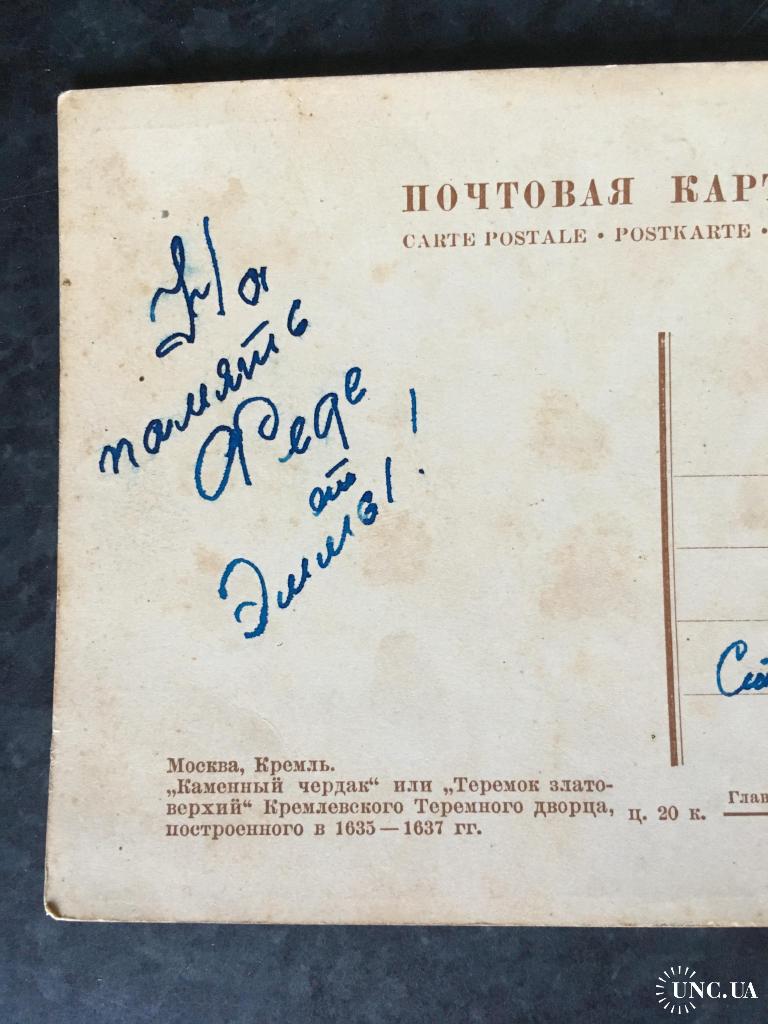 ПОЧТОВАЯ КАРТ
CARTE POSTALE • POSTKARTE •
На
память
Феде
от
Эммы!
Сто
Москва, Кремль.
„Каменный чердак“ или „Теремок злато-
верхий“ Кремлевского Теремного дворца,
построенного в 1635—1637 гг.
ц. 20 к.
Глав
UNC.UA